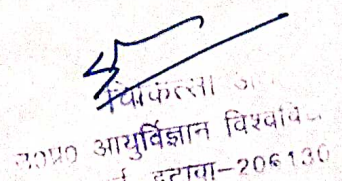 चिकित्सा
उ०प्र० आयुर्विज्ञान विश्ववि
इटावा-206130